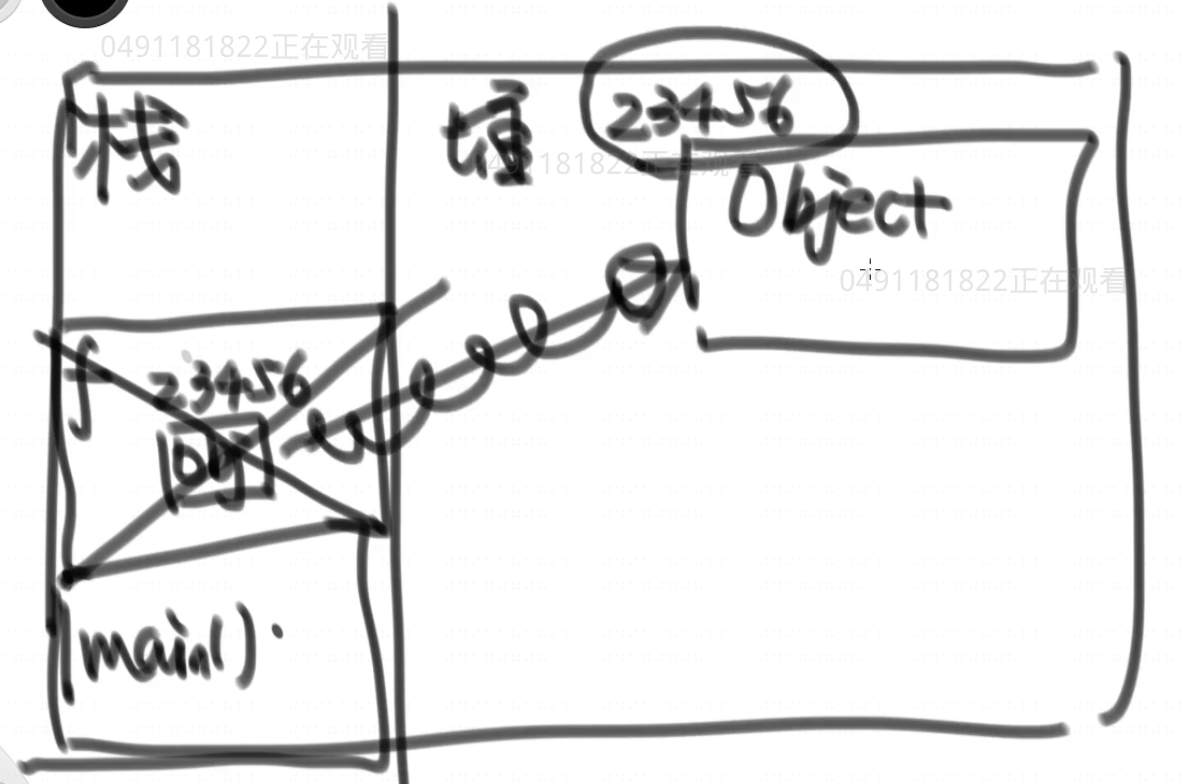 0491181822正在观看
栈
堆
23456
0491181822正在观看
Object
0491181822正在观看
f
23456
obj
main()